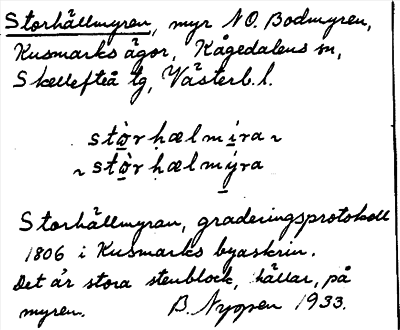 Storhällmyren, myr NO. Bodmyren,
Kusmarks ägor, Kågedalens sn,
Skellefteå tg, Västerb. l.
stòrhælmíra ~
~ stòrhælmýra
Storhällmyran, graderingsprotokoll
1806 i Kusmarks byaskrin.
Det är stora stenblock, hällar, på
myren. B. Nyppen 1933.